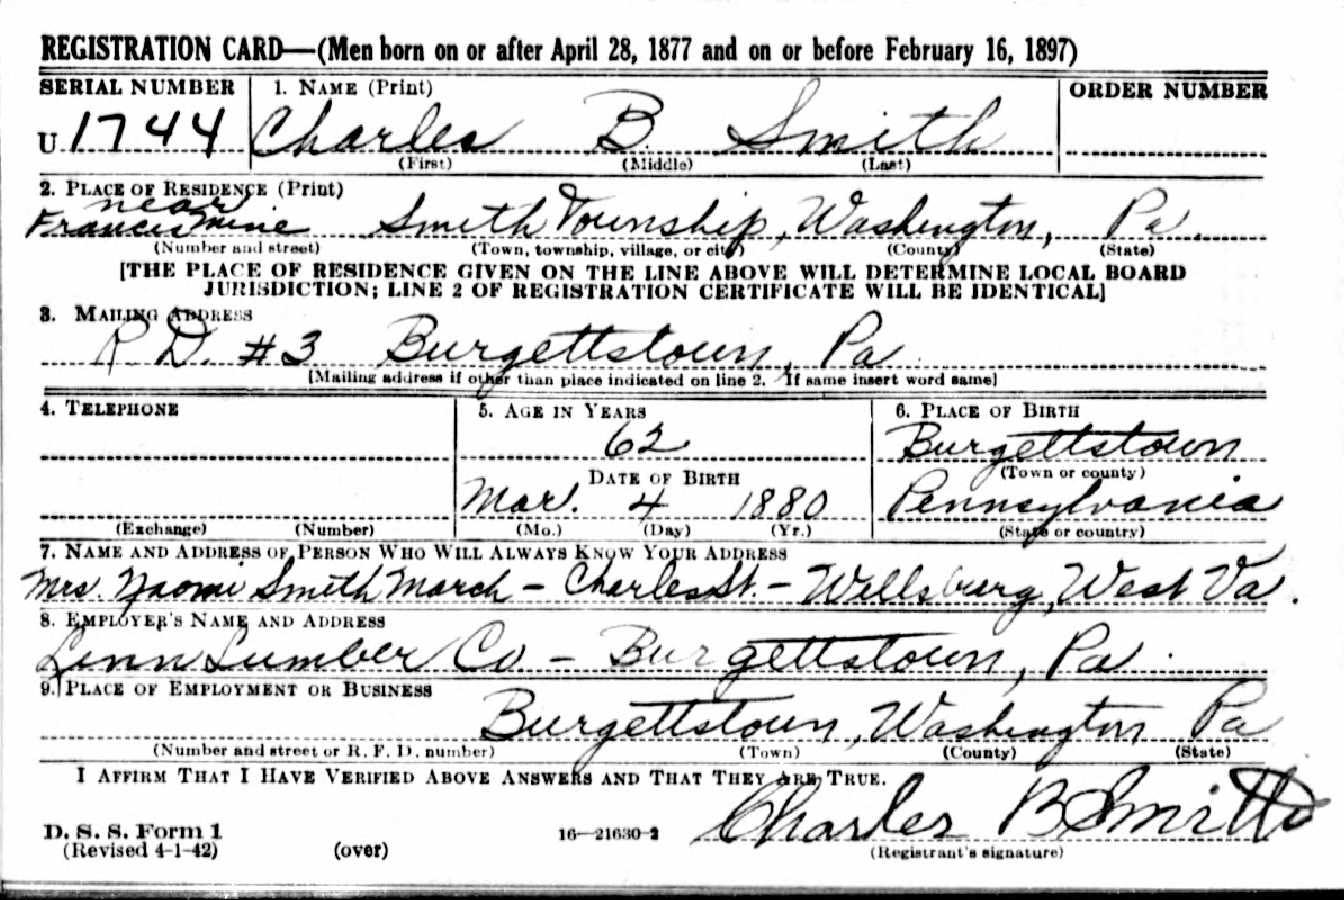 REGISTRATION CARD—(Men born on or after April 28, 1877 and on or before February 16, 1897)
SERIAL NUMBER 1. NAME (Print) ORDER NUMBER
U 1744 Charles B. Smith
(First) (Middle) (Last)
2. PLACE OF RESIDENCE (Print)
near
Francis Mine Smith Township, Washington, Pa.
(Number and street) (Town, township, village, or city) (County) (State)
[THE PLACE OF RESIDENCE GIVEN ON THE LINE ABOVE WILL DETERMINE LOCAL BOARD
JURISDICTION; LINE 2 OF REGISTRATION CERTIFICATE WILL BE IDENTICAL]
3. MAILING ADDRESS
R D. #3 Burgettstown, Pa.
[Mailing address if other than place indicated on line 2. If same insert word same]
4. TELEPHONE 5. AGE IN YEARS 6. PLACE OF BIRTH
62 Burgettstown
(Town or county)
DATE OF BIRTH
Mar. 4 1880 Pennsylvania
(Exchange) (Number) (Mo.) (Day) (Yr.) (State or country)
7. NAME AND ADDRESS OF PERSON WHO WILL ALWAYS KNOW YOUR ADDRESS
Mrs. Naomi Smith March - Charles St. - Wellsburg, West Va.
8. EMPLOYER'S NAME AND ADDRESS
Linn Lumber Co - Burgettstown, Pa.
9. PLACE OF EMPLOYMENT OR BUSINESS
Burgettstown, Washington Pa
(Number and street or R. F. D. number) (Town) (County) (State)
I AFFIRM THAT I HAVE VERIFIED ABOVE ANSWERS AND THAT THEY ARE TRUE.
Charles B Smith
D. S. S. Form 1 16—21630-2
(Revised 4-1-42) (over) (Registrant's signature)